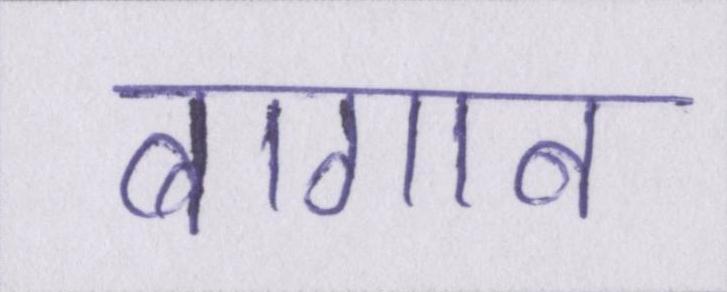 बागान